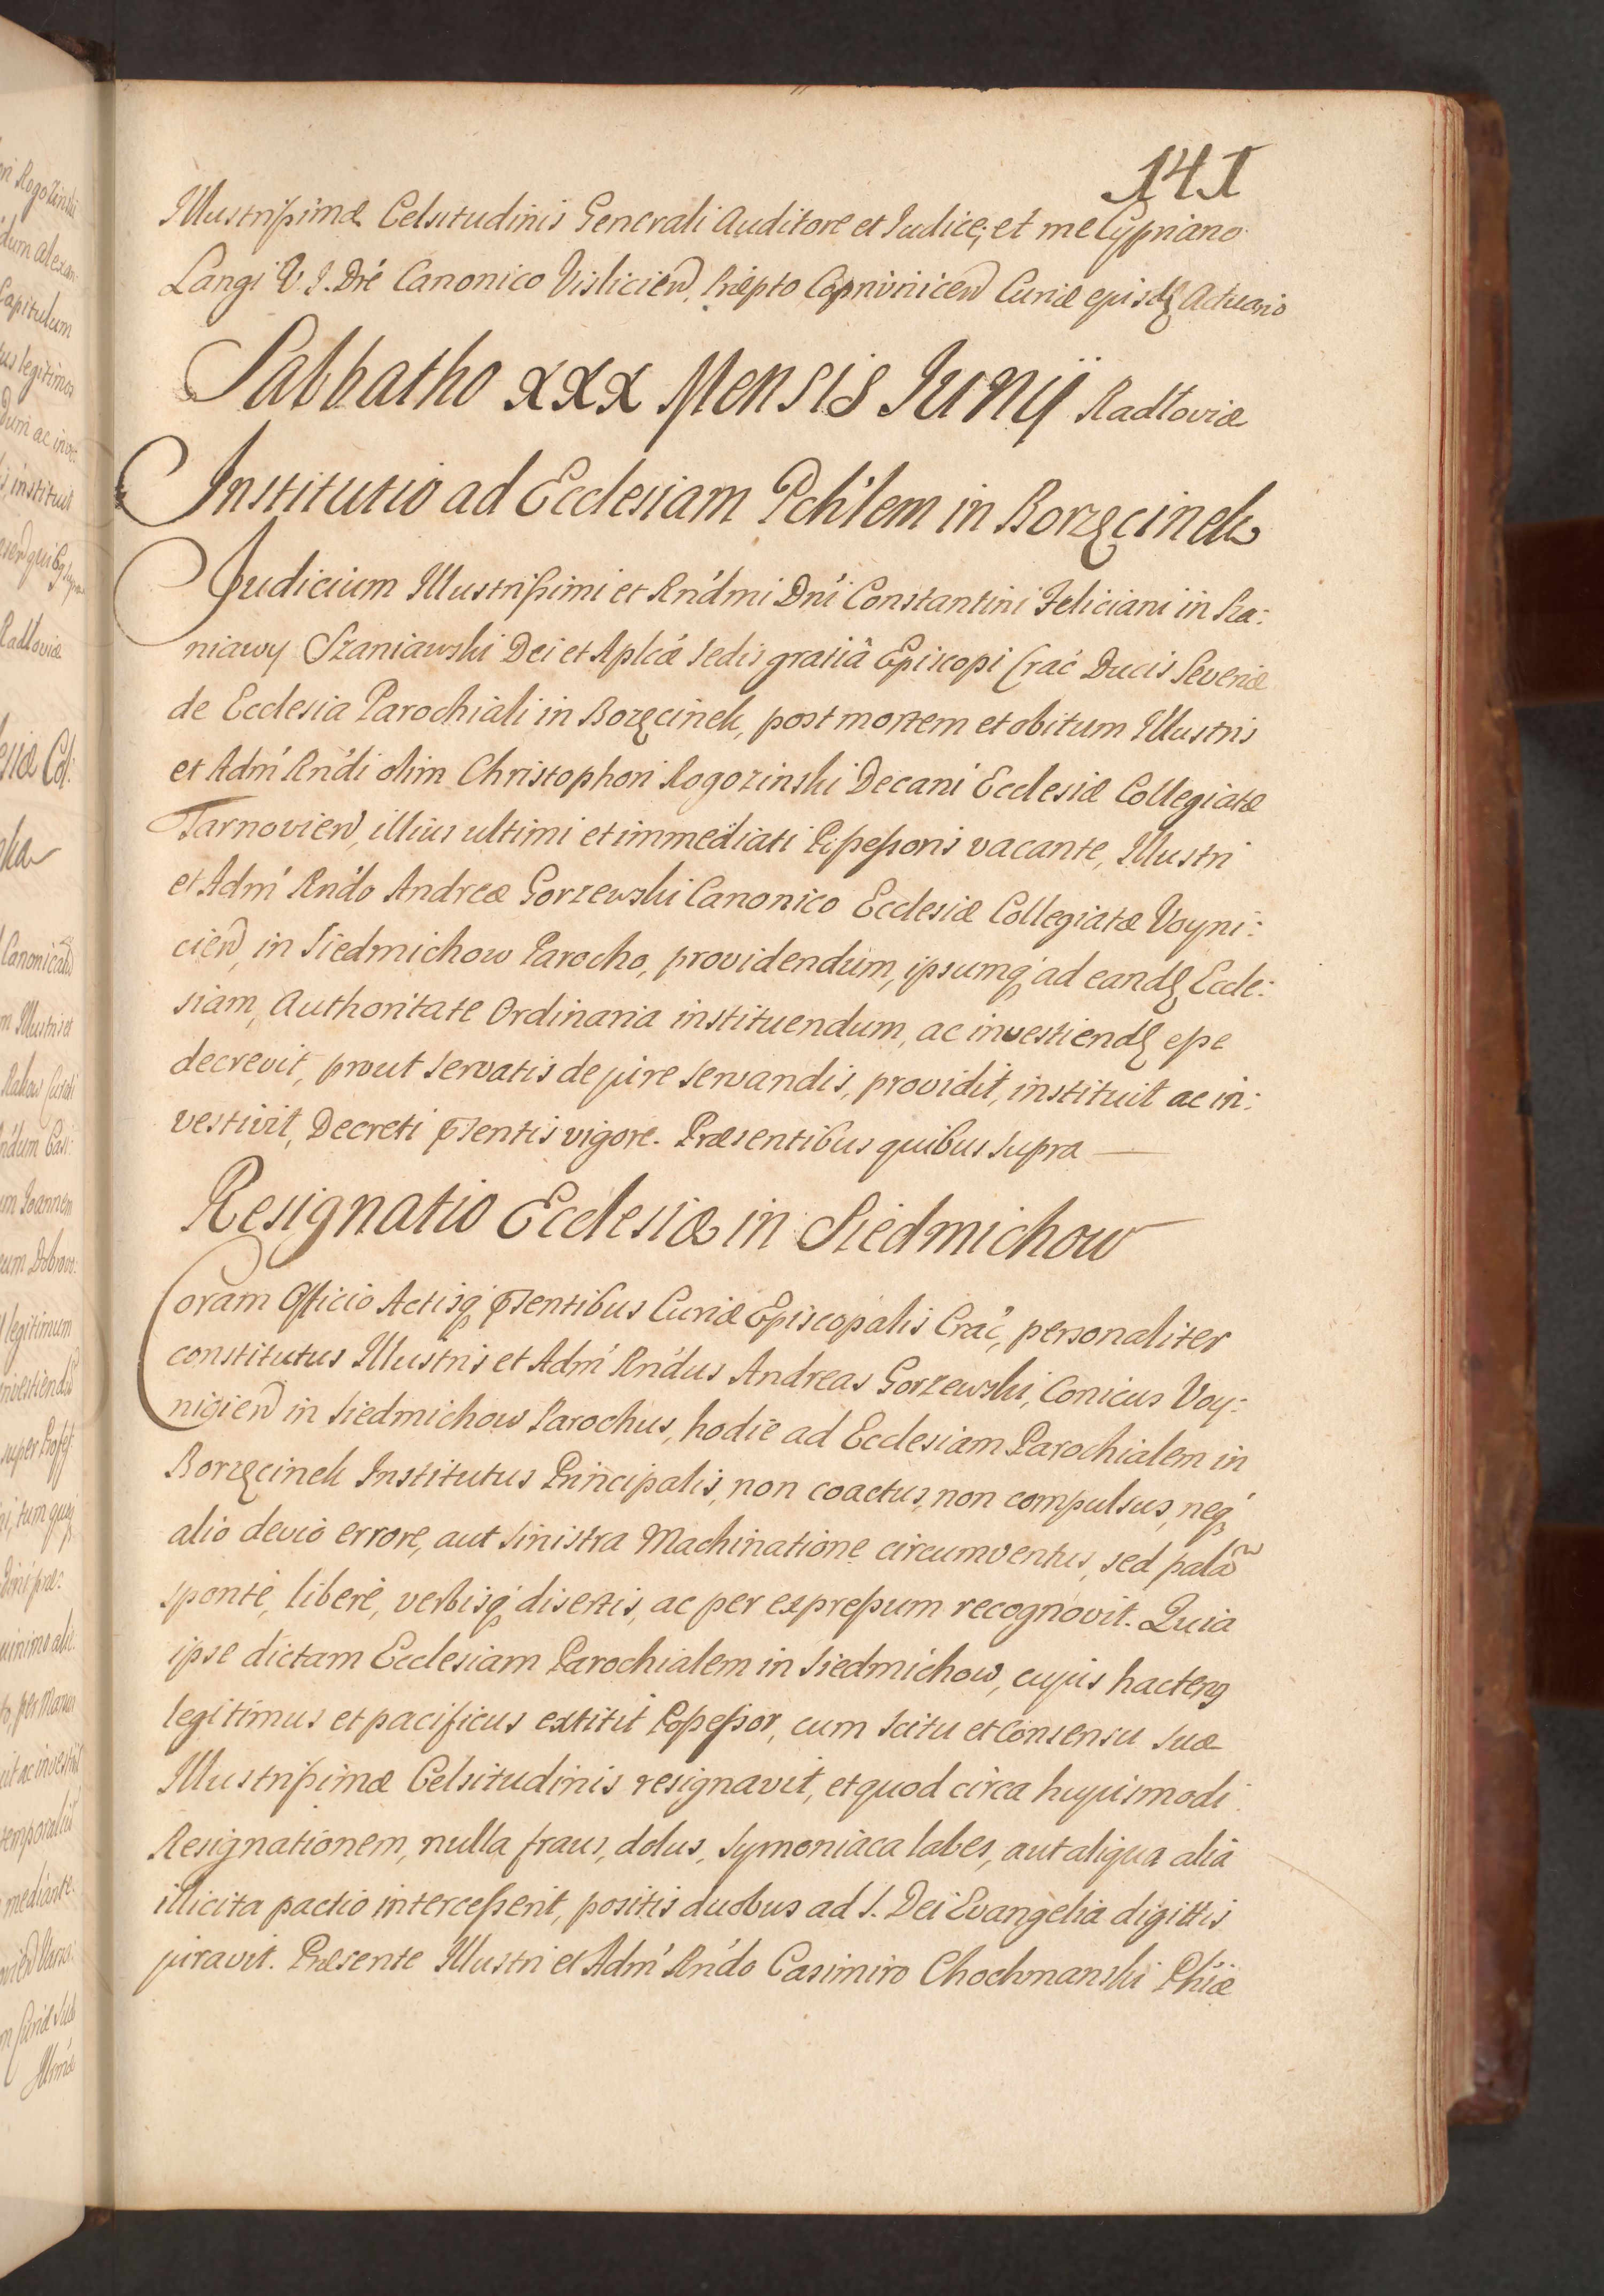 141
Illustrissimæ Celsitudinis Generali Auditore et Iudice; et me Cypriano
Langi V. I. Dre Canonico Vislicien, Præpto Coprivnicen Curiæ ejusdę Actuario
Sabbatho xxx Mensis Iunÿ Radłoviæ
Institutio ad Ecclesiam Pch'lem in Borzęcinek
Judicium Illustrissimi et Rn'dmi Dn'i Constantini Feliciani in Sza:
niawy Szaniawski Dei et Aplcæ Sedis gratiâ Episcopi Crac' Ducis Severiæ
de Ecclesia Parochiali in Borzęcinek, post mortem et obitum Illustris
et Adm' Rn'di olim Christophori Rogozinski Decani Ecclesiæ Collegiatæ
Tarnovien, illius ultimi et immediati Possessoris vacante, Illustri
et Adm' Rn'do Andreæ Gorzewski Canonico Ecclesiæ Collegiatæ Voyni:
cien, in Siedmichow Parocho, providendum, ipsumq' ad eandę Eccle:
siam, Authoritate Ordinaria instituendum, ac investiendę esse
decrevit, prout servatis de jure servandis, providit, instituit ac in:
vestivit, Decreti p̄sentis vigore. Præsentibus quibus supra —
Resignatio Ecclesiæ in Siedmichow
Coram Officio Actisq' p̄sentibus Curiæ Episcopalis Crac', personaliter
constitutus Illustris et Adm' Rn'dus Andreas Gorzewski, Conicus Voy:
nicien in Siedmichow Parochus, hodie ad Ecclesiam Parochialem in
Borzęcinek Institutus Principalis, non coactus, non compulsus, neq'
alio devio errore, aut sinistra Machinatione circumventus, sed palã
sponte, libere, verbisq' disertis, ac per expressum recognovit. Quia
ipse dictam Ecclesiam Parochialem in Siedmichow, cujus hacteng
legitimus et pacificus extitit Possessor, cum scitu et Consensu suæ
Illustrissimæ Celsitudinis resignavit, et quod circa hujusmodi
Resignationem, nulla fraus, dolus, Symoniaca labes, aut aliqua alia
illicita pactio intercesserit, positis duobus ad S. Dei Evangelia digittis
juravit. Præsente Illustri et Adm' Rn'do Casimiro Chochmanski Phiæ